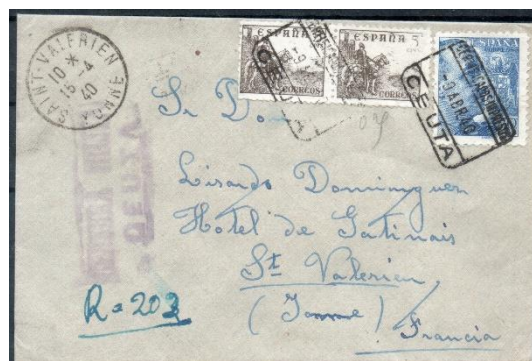 SAINT-VALERIEN
10 *
15 -4
40
YONNE
ESPAÑA
CORREOS
ESPAÑA 5
CORREOS
ESPAÑA
CEUTA
-9 ABR 40
CEUTA
CEUTA
Sr Do
Lisardo Dominguez
Hotel de Gatinais
St Valerien
(Yonne)
Francia
R = 203